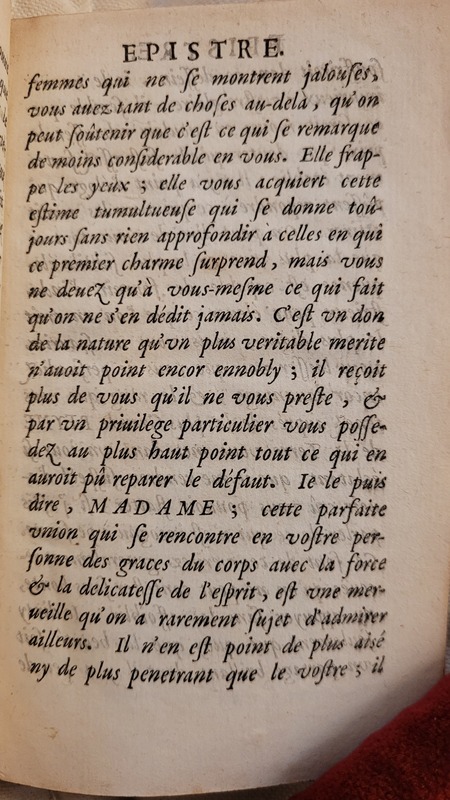 EPISTRE.
femmes qui ne ſe montrent jalouſes,
vous auez tant de choſes au-delà, qu'on
peut ſoûtenir que c'eſt ce qui ſe remarque
de moins conſiderable en vous. Elle frap-
pe les yeux ; elle vous acquiert cette
eſtime tumultueuſe qui ſe donne toû-
jours ſans rien approfondir à celles en qui
ce premier charme ſurprend, mais vous
ne deuez qu'à vous-meſme ce qui fait
qu'on ne s'en dédit jamais. C'eſt vn don
de la nature qu'vn plus veritable merite
n'auoit point encor ennobly ; il reçoit
plus de vous qu'il ne vous preſte, &
par vn priuilege particulier vous poſſe-
dez au plus haut point tout ce qui en
auroit pû reparer le défaut. Ie le puis
dire, MADAME ; cette parfaite
vnion qui ſe rencontre en voſtre per-
ſonne des graces du corps auec la force
& la delicateſſe de l'eſprit, eſt vne mer-
ueille qu'on a rarement ſujet d'admirer
ailleurs. Il n'en eſt point de plus aisé
ny de plus penetrant que le voſtre ; il